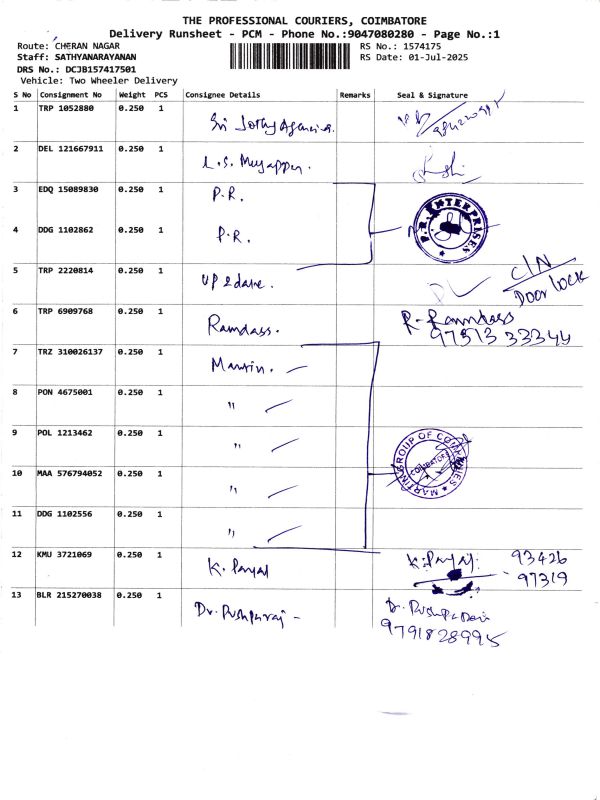 THE PROFESSIONAL COURIERS, COIMBATORE
Delivery Runsheet - PCM - Phone No.:9047080280 - Page No.:1
Route: CHERAN NAGAR
RS No.: 1574175
Staff: SATHYANARAYANAN
RS Date: 01-Jul-2025
DRS No.: DCJB157417501
Vehicle: Two Wheeler Delivery
S No Consignment No Weight PCS Consignee Details Remarks Seal & Signature
1 TRP 1052880 0.250 1
Sri Jothy Agencies.
2 DEL 121667911 0.250 1
L.S. Meyappan.
3 EDQ 15089830 0.250 1
P.R.
P.R. ENTERPRISES
4 DDG 1102862 0.250 1
P.R.
5 TRP 2220814 0.250 1
UP 2 date.
DL
C/N
Door Lock
6 TRP 6909768 0.250 1
Ramdass.
R-Ramdass
97513 33344
7 TRZ 310026137 0.250 1
Martin. -
8 PON 4675001 0.250 1
"
9 POL 1213462 0.250 1
"
MARTIN GROUP OF COMPANIES
COIMBATORE
10 MAA 576794052 0.250 1
"
11 DDG 1102556 0.250 1
"
12 KMU 3721069 0.250 1
K. Payal
K. Payal. 93426
- 97319
13 BLR 215270038 0.250 1
Dr. Pushparaj -
Dr. Pushparaj
9791828995